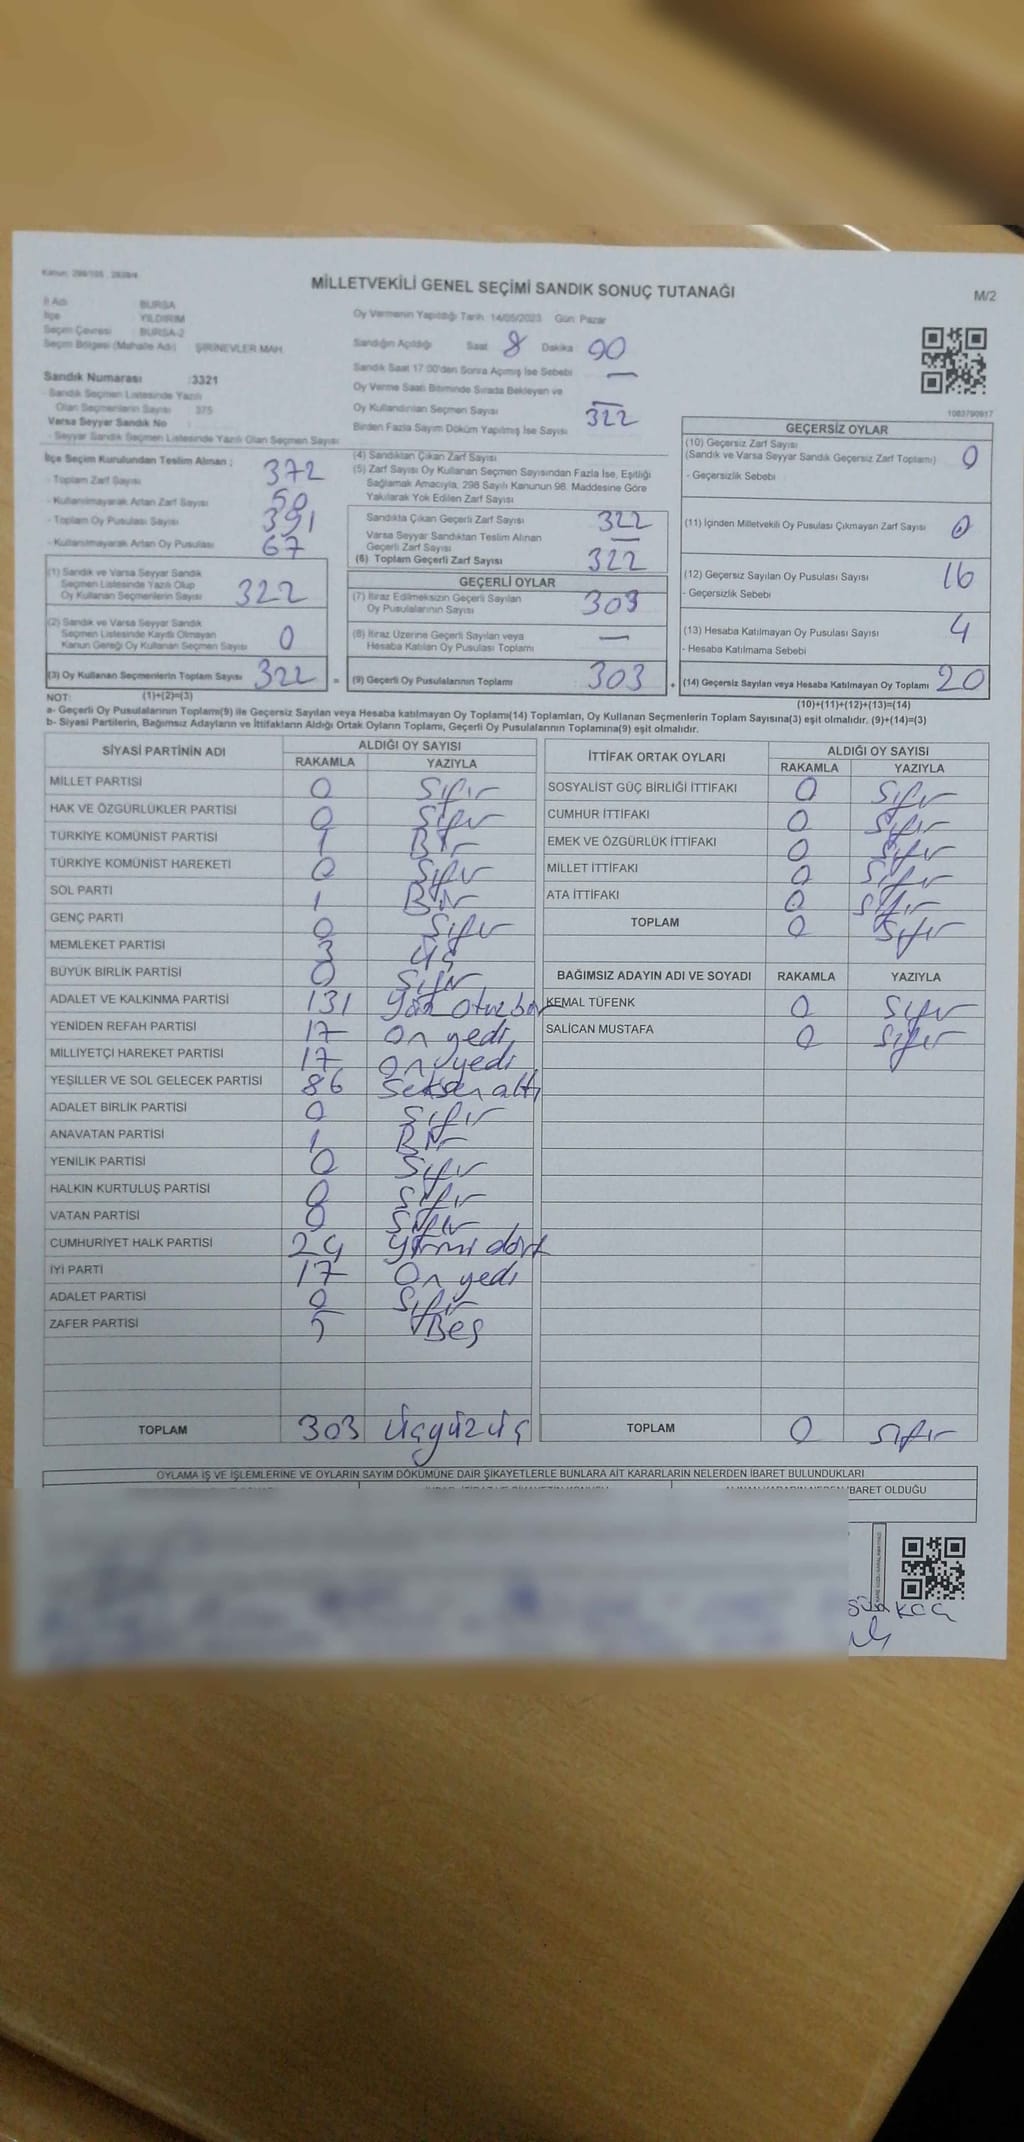 Kanun: 298/105 , 2839/4
MİLLETVEKİLİ GENEL SEÇİMİ SANDIK SONUÇ TUTANAĞI
M/2
İl Adı : BURSA
İlçe : YILDIRIM
Seçim Çevresi : BURSA-2
Seçim Bölgesi (Mahalle Adı) : ŞİRİNEVLER MAH.
Oy Vermenin Yapıldığı Tarih: 14/05/2023 Gün: Pazar
Sandığın Açıldığı Saat 8 Dakika 00
Sandık Saat 17:00'den Sonra Açılmış İse Sebebi —
Oy Verme Saati Bitiminde Sırada Bekleyen ve
Oy Kullandırılan Seçmen Sayısı —
Birden Fazla Sayım Döküm Yapılmış İse Sayısı 322
1003790917
Sandık Numarası :3321
- Sandık Seçmen Listesinde Yazılı
Olan Seçmenlerin Sayısı : 375
Varsa Seyyar Sandık No :
- Seyyar Sandık Seçmen Listesinde Yazılı Olan Seçmen Sayısı:
İlçe Seçim Kurulundan Teslim Alınan ;
- Toplam Zarf Sayısı : 372
- Kullanılmayarak Artan Zarf Sayısı : 50
- Toplam Oy Pusulası Sayısı : 391
- Kullanılmayarak Artan Oy Pusulası : 67
(1) Sandık ve Varsa Seyyar Sandık
Seçmen Listesinde Yazılı Olup
Oy Kullanan Seçmenlerin Sayısı 322
(2) Sandık ve Varsa Seyyar Sandık
Seçmen Listesinde Kayıtlı Olmayan
Kanun Gereği Oy Kullanan Seçmen Sayısı 0
(3) Oy Kullanan Seçmenlerin Toplam Sayısı 322 =
(4) Sandıktan Çıkan Zarf Sayısı
(5) Zarf Sayısı Oy Kullanan Seçmen Sayısından Fazla İse, Eşitliği
Sağlamak Amacıyla, 298 Sayılı Kanunun 98. Maddesine Göre
Yakılarak Yok Edilen Zarf Sayısı
Sandıkta Çıkan Geçerli Zarf Sayısı 322
Varsa Seyyar Sandıktan Teslim Alınan
Geçerli Zarf Sayısı —
(6) Toplam Geçerli Zarf Sayısı 322
GEÇERLİ OYLAR
(7) İtiraz Edilmeksizin Geçerli Sayılan
Oy Pusulalarının Sayısı 303
(8) İtiraz Üzerine Geçerli Sayılan veya
Hesaba Katılan Oy Pusulası Toplamı —
(9) Geçerli Oy Pusulalarının Toplamı 303 +
GEÇERSİZ OYLAR
(10) Geçersiz Zarf Sayısı
(Sandık ve Varsa Seyyar Sandık Geçersiz Zarf Toplamı) 0
- Geçersizlik Sebebi
(11) İçinden Milletvekili Oy Pusulası Çıkmayan Zarf Sayısı 0
(12) Geçersiz Sayılan Oy Pusulası Sayısı 16
- Geçersizlik Sebebi
(13) Hesaba Katılmayan Oy Pusulası Sayısı 4
- Hesaba Katılmama Sebebi
(14) Geçersiz Sayılan veya Hesaba Katılmayan Oy Toplamı 20
NOT: (1)+(2)=(3)
(10)+(11)+(12)+(13)=(14)
a- Geçerli Oy Pusulalarının Toplamı(9) ile Geçersiz Sayılan veya Hesaba katılmayan Oy Toplamı(14) Toplamları, Oy Kullanan Seçmenlerin Toplam Sayısına(3) eşit olmalıdır. (9)+(14)=(3)
b- Siyasi Partilerin, Bağımsız Adayların ve İttifakların Aldığı Ortak Oyların Toplamı, Geçerli Oy Pusulalarının Toplamına(9) eşit olmalıdır.
SİYASİ PARTİNİN ADI
ALDIĞI OY SAYISI
RAKAMLA YAZIYLA
MİLLET PARTİSİ 0 Sıfır
HAK VE ÖZGÜRLÜKLER PARTİSİ 0 Sıfır
TÜRKİYE KOMÜNİST PARTİSİ 1 Bir
TÜRKİYE KOMÜNİST HAREKETİ 0 Sıfır
SOL PARTİ 1 Bir
GENÇ PARTİ 0 Sıfır
MEMLEKET PARTİSİ 3 Üç
BÜYÜK BİRLİK PARTİSİ 0 Sıfır
ADALET VE KALKINMA PARTİSİ 131 Yüz otuz bir
YENİDEN REFAH PARTİSİ 17 On yedi
MİLLİYETÇİ HAREKET PARTİSİ 17 On yedi
YEŞİLLER VE SOL GELECEK PARTİSİ 86 Seksen altı
ADALET BİRLİK PARTİSİ 0 Sıfır
ANAVATAN PARTİSİ 1 Bir
YENİLİK PARTİSİ 0 Sıfır
HALKIN KURTULUŞ PARTİSİ 0 Sıfır
VATAN PARTİSİ 0 Sıfır
CUMHURİYET HALK PARTİSİ 24 Yirmi dört
İYİ PARTİ 17 On yedi
ADALET PARTİSİ 0 Sıfır
ZAFER PARTİSİ 5 Beş
TOPLAM 303 Üçyüz üç
İTTİFAK ORTAK OYLARI
ALDIĞI OY SAYISI
RAKAMLA YAZIYLA
SOSYALİST GÜÇ BİRLİĞİ İTTİFAKI 0 Sıfır
CUMHUR İTTİFAKI 0 Sıfır
EMEK VE ÖZGÜRLÜK İTTİFAKI 0 Sıfır
MİLLET İTTİFAKI 0 Sıfır
ATA İTTİFAKI 0 Sıfır
TOPLAM 0 Sıfır
BAĞIMSIZ ADAYIN ADI VE SOYADI RAKAMLA YAZIYLA
KEMAL TÜFENK 0 Sıfır
SALİCAN MUSTAFA 0 Sıfır
TOPLAM 0 Sıfır
OYLAMA İŞ VE İŞLEMLERİNE VE OYLARIN SAYIM DÖKÜMÜNE DAİR ŞİKAYETLERLE BUNLARA AİT KARARLARIN NELERDEN İBARET BULUNDUKLARI
İBARET OLDUĞU